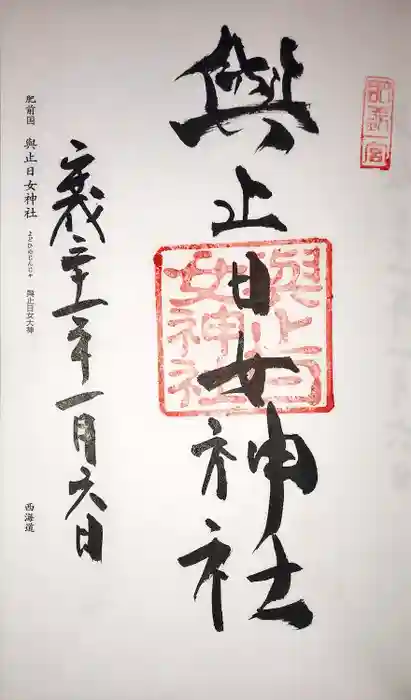 肥前一宮
與止日女神社
與止日女神社
平成三十一年一月六日
肥前国 與止日女神社 よどひめじんじゃ 與止日女大神 西海道